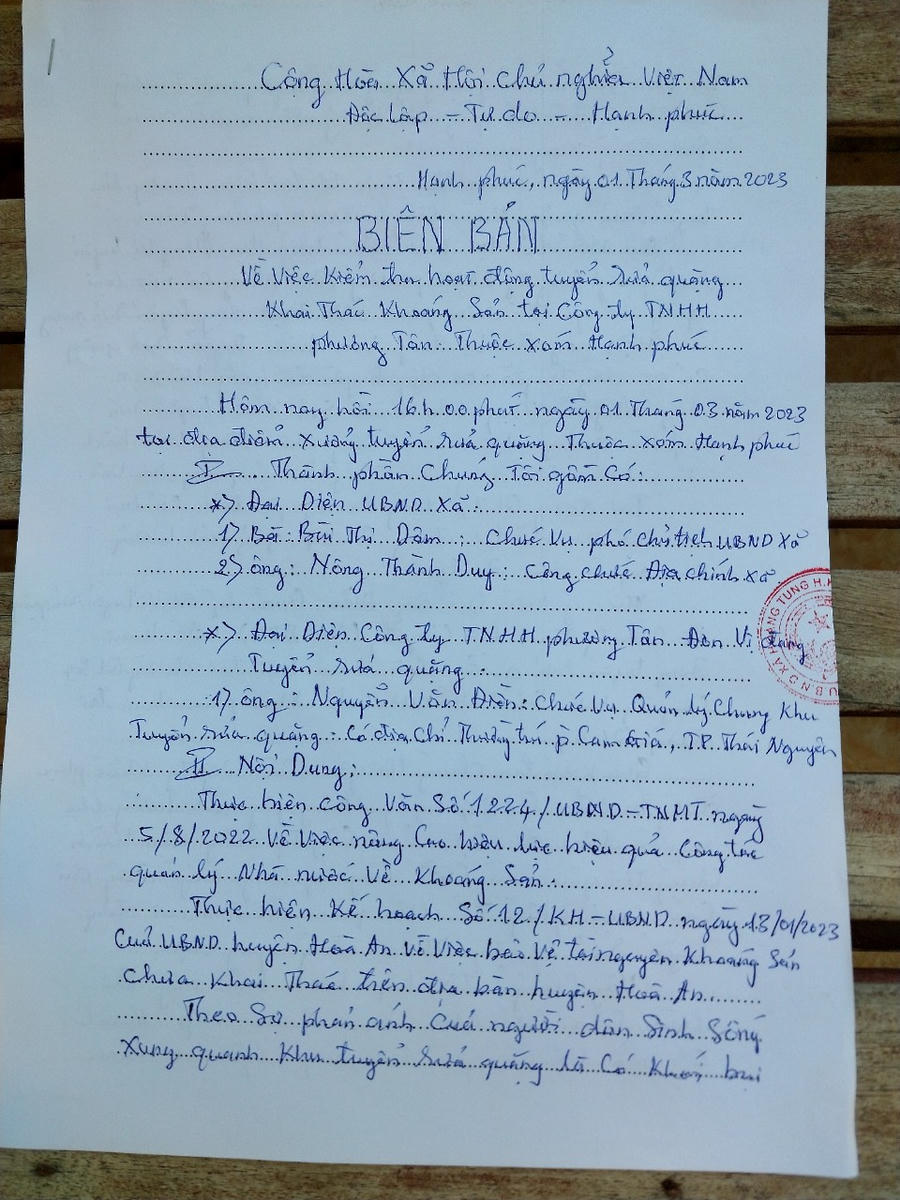 Cộng Hòa Xã Hội Chủ nghĩa Việt Nam
Độc lập - Tự do - Hạnh phúc
Hạnh phúc, ngày 01 Tháng 3 năm 2023
BIÊN BẢN
Về Việc Kiểm tra hoạt động tuyển rửa quặng
Khai Thác Khoáng Sản tại Công ty TNHH
phương Tân Thuộc xóm Hạnh phúc
Hôm nay hồi 16h 00 phút ngày 01 Tháng 03 năm 2023
tại địa điểm xưởng tuyển rửa quặng Thuộc xóm Hạnh phúc
I Thành phần Chúng Tôi gồm Có:
*) Đại Diện UBND Xã:
1) Bà: Bùi Thị Dâm: Chức Vụ phó chủ tịch UBND Xã
2) ông: Nông Thành Duy: Công chức Địa chính xã
*) Đại Diện Công ty TNHH phương Tân Đơn Vị
Tuyển rửa quặng:
1) ông: Nguyễn Văn Điền: Chức Vụ Quản lý Chung Khu
Tuyển rửa quặng: Có địa Chỉ Thường trú p. Cam Giá, TP Thái Nguyên
II Nội Dung:
Thực hiện công Văn Số 1224/UBND-TNMT ngày
5/8/2022 Về Việc nâng Cao hiệu lực hiệu quả Công tác
quản lý Nhà nước Về Khoáng Sản.
Thực hiện Kế hoạch Số 12/KH-UBND ngày 13/01/2023
Của UBND huyện Hoà An Về Việc bảo Vệ tài nguyên Khoáng Sản
chưa Khai Thác trên địa bàn huyện Hoà An
Theo Sự phản ánh Của người dân Sinh Sống
Xung quanh Khu tuyển rửa quặng là Có Khói bụi